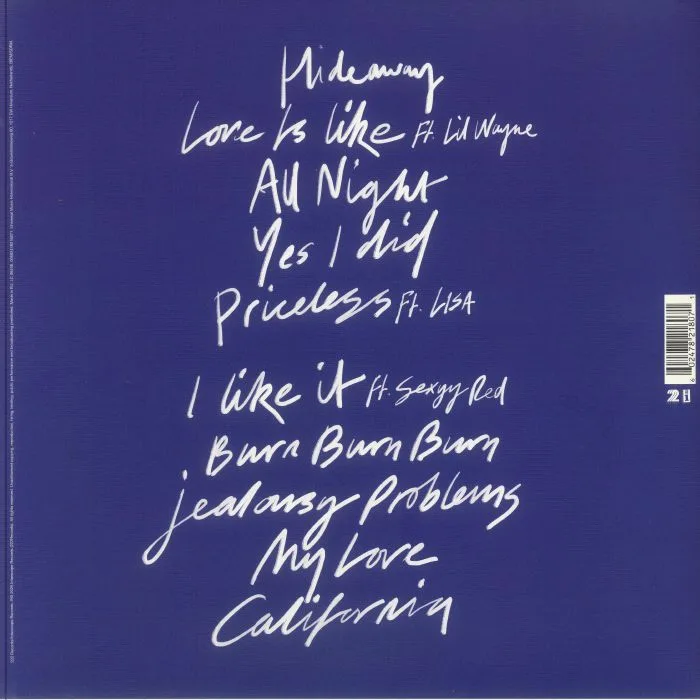 Hideaway
Love Is Like Ft. Lil Wayne
All Night
Yes I did
Priceless Ft. LISA
I like it ft. Sexyy Red
Burn Burn Burn
jealousy Problems
My Love
California
6 02478 21807 1